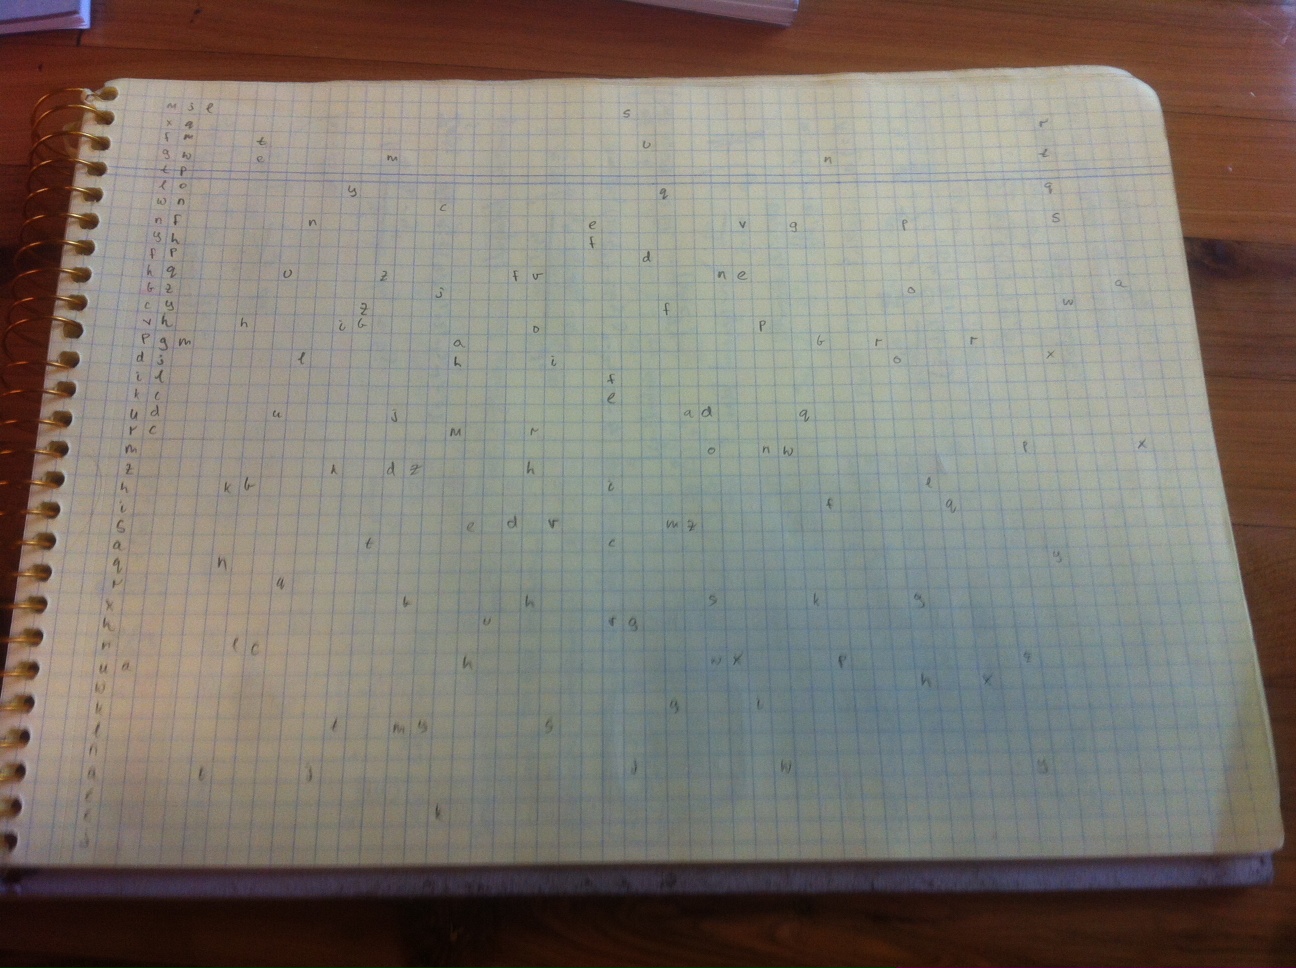 m j l s
x q r
f m t u
g w e m n t
t p
l o y q q
w n c
n f n e v q p s
y h f
f p d
h q u z f v n e
b z j o a
c y z f w
v h h i b o p
p g m a b r r
d j l h i o x
i l f
k c e
u d u j a d q
r c m r
m o n w p x
z h d z h
h k b i l
i f q
s e d v m z
a t c y
q n
r q
x t h s k g
h u r g
n l c
u a h w x p z
w h x
g i
l l m g g
n
l j j w y
k